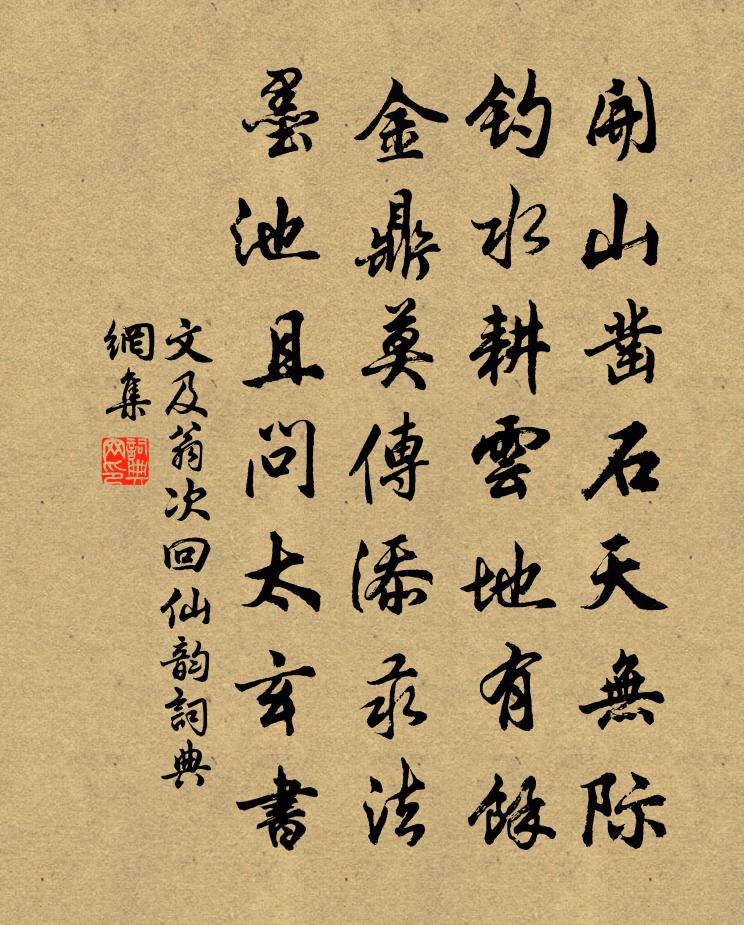 開山凿石天無际
钓水耕雲地有餘
金鼎莫傳添汞法
墨池且问太玄書
文及翁次回仙韵詞典
網集
詞典網印